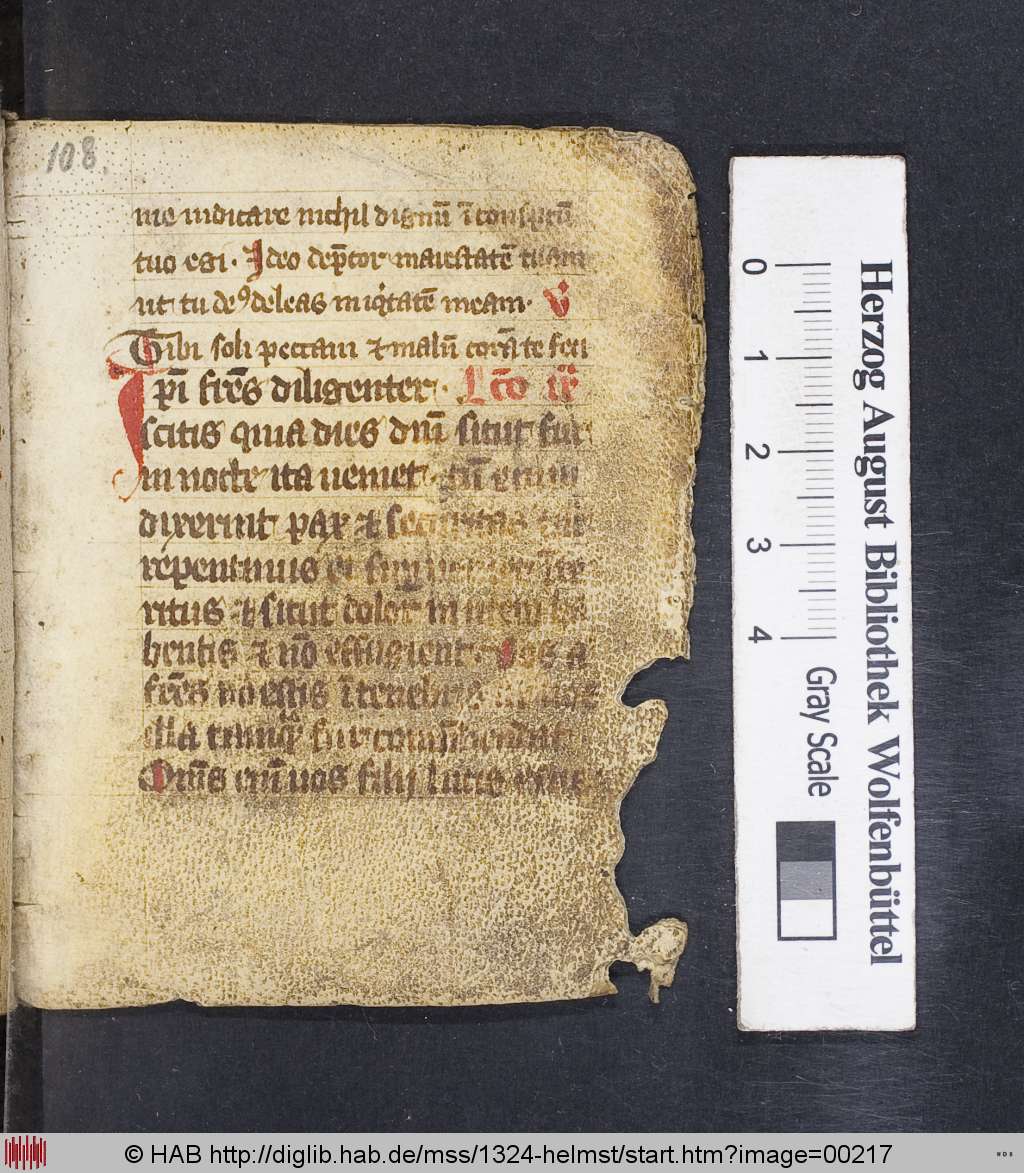 108.
me iudicare nichil dignū ī conspectū
tuo egi. Ideo dep̄cor maiestatē tuam
ut tu deꝰ deleas iniqͥtatē meam. V̕
Tibi soli peccaui ⁊ malū corā te feci
Ip̄i fr̄es diligenter. Lc̄o iiͣ
scitis quia dies dn̄i sicut fur
in nocte ita ueniet. cū enim
dixerint pax ⁊ securitas tūc
repentinus ei superueniet īte
ritus ⁊ sicut dolor in utero ha
bentis ⁊ nō effugient. Vos a
fr̄es nō estis ī tenebris ut uos
illa tamqͣ fur comp̄hendat
Om̄s eni͂ uos filij lucis estis
0
1
2
3
4
Gray Scale
Herzog August Bibliothek Wolfenbüttel
© HAB http://diglib.hab.de/mss/1324-helmst/start.htm?image=00217